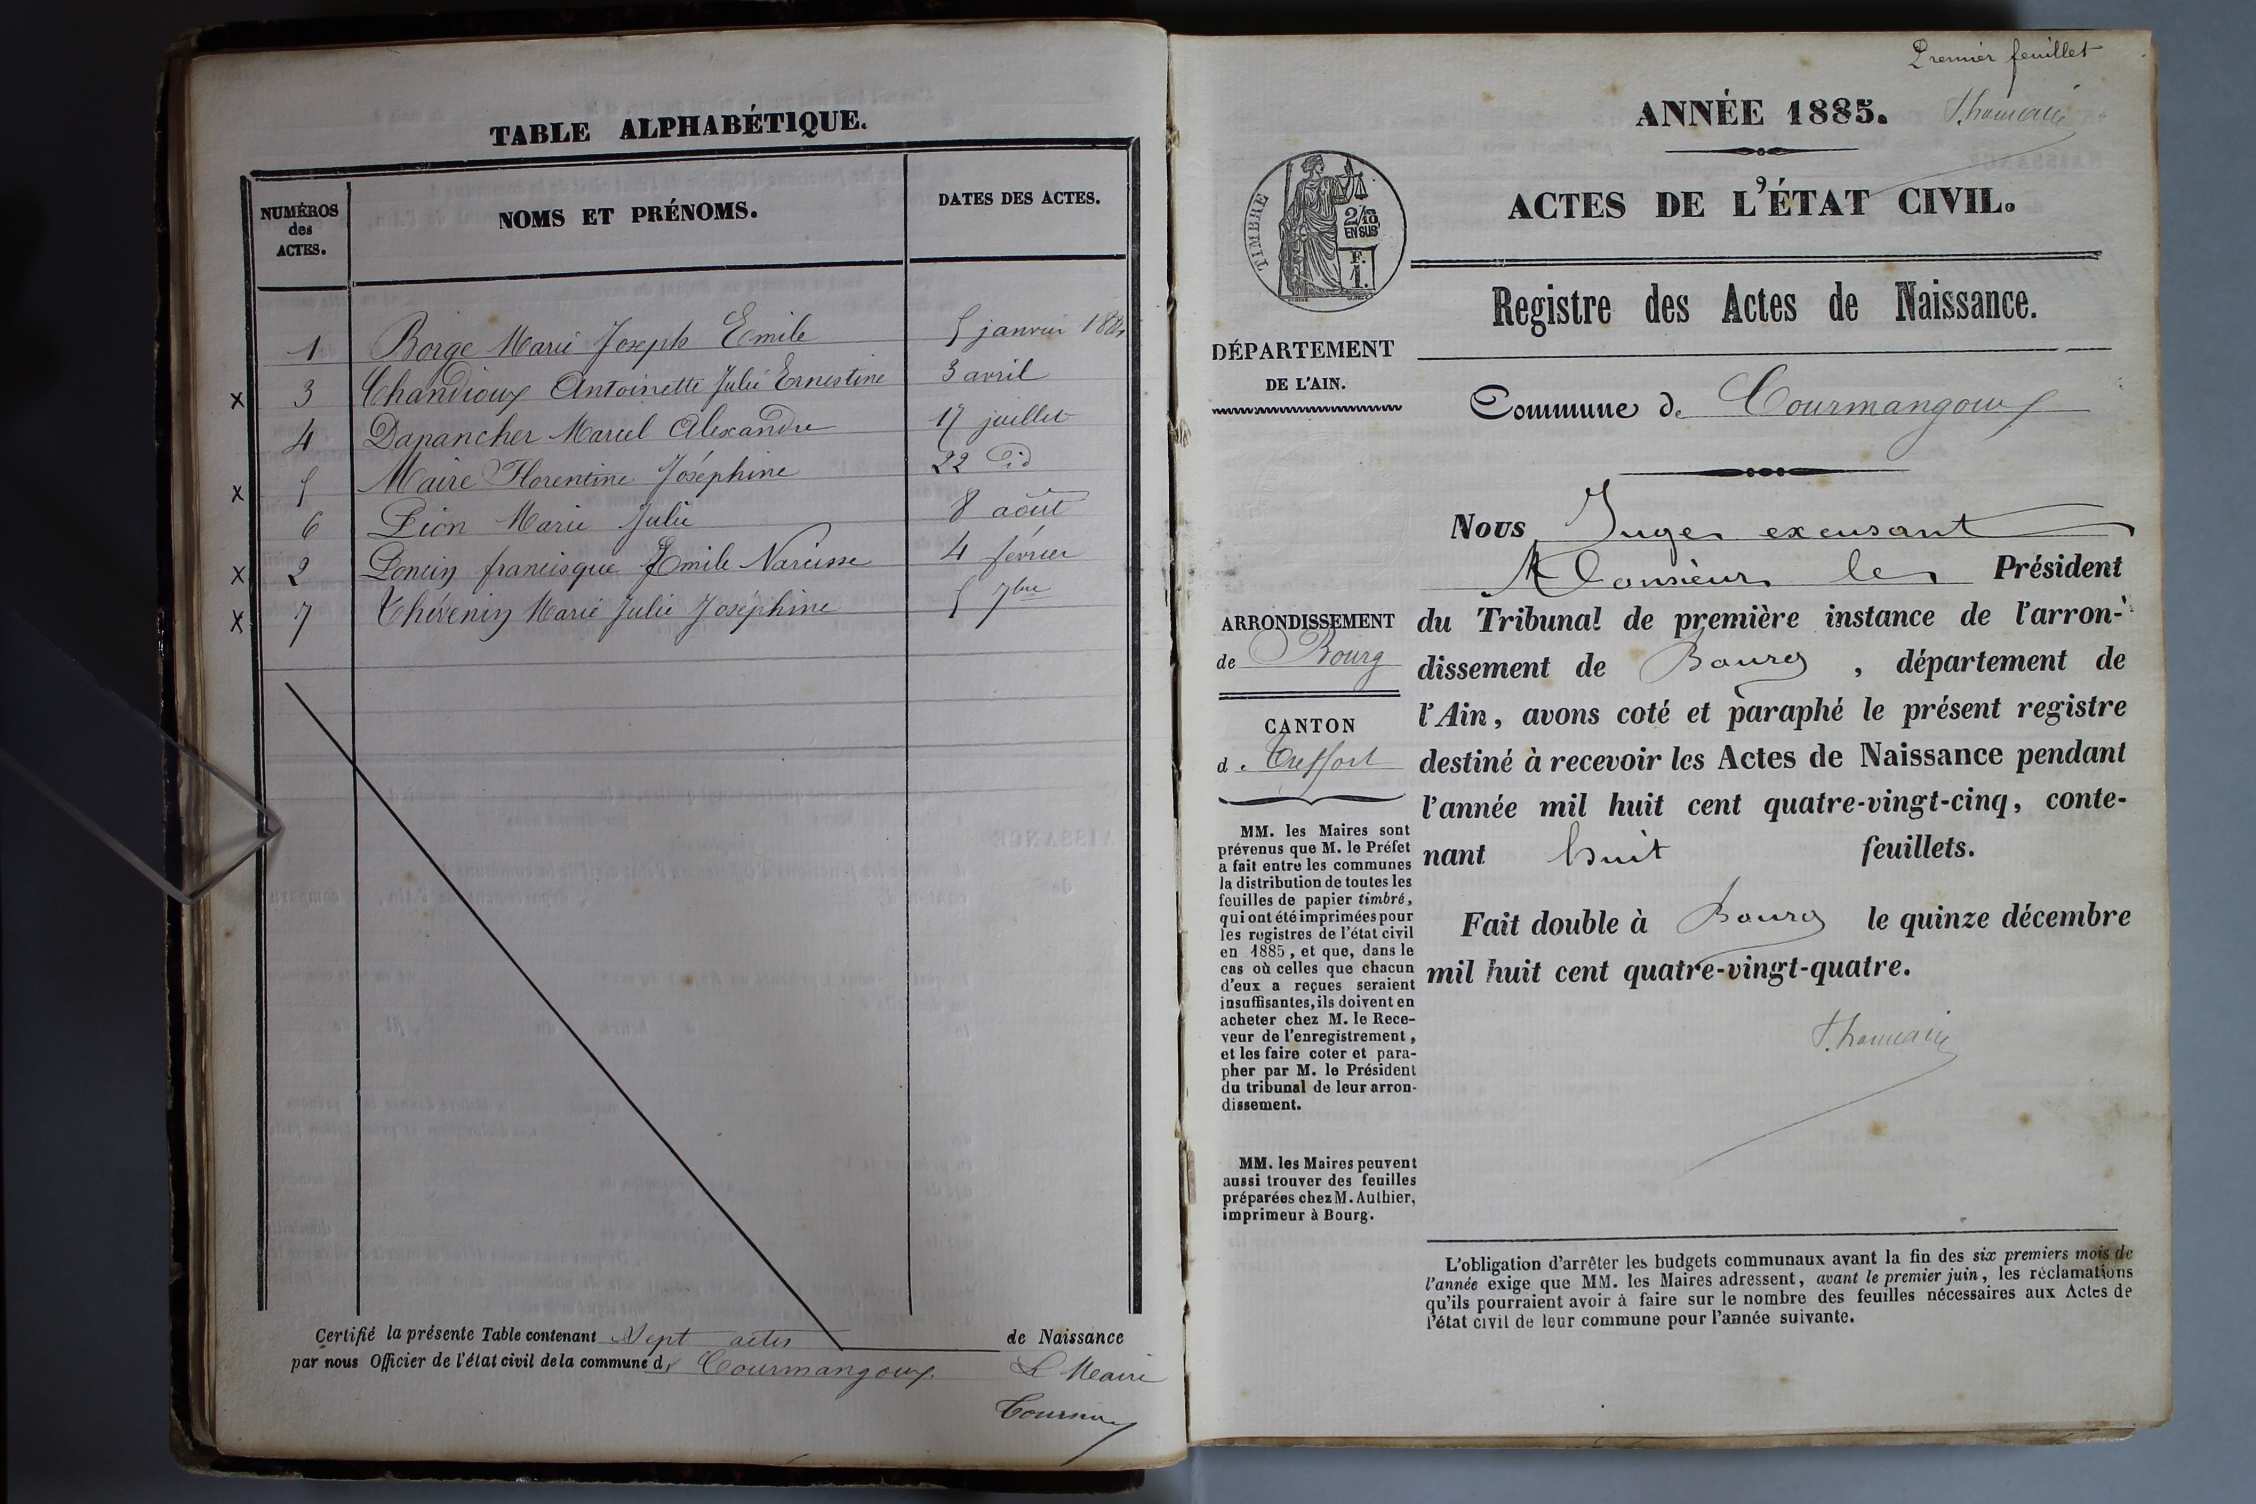 TABLE ALPHABÉTIQUE.
NUMÉROS
des
ACTES.
NOMS ET PRÉNOMS.
DATES DES ACTES.
1 Borge Marie Joseph Emile 5 janvier 1884
x 3 Chandioux Antoinette Julie Ernestine 3 avril
4 Dapancher Marcel Alexandre 17 juillet
x 5 Maire Florentine Joséphine 22 id
6 Pion Marie Julie 8 août
x 2 Poncin francisque Emile Narcisse 4 février
x 7 Thévenin Marie Julie Joséphine 5 7bre
Certifié la présente Table contenant Sept actes de Naissance
par nous Officier de l'état civil de la commune de Courmangoux
Le Maire
Premier feuillet
ANNÉE 1885.
ACTES DE L'ÉTAT CIVIL.
TIMBRE
2/10
EN SUS
F.
1.
Registre des Actes de Naissance.
DÉPARTEMENT
DE L'AIN.
Commune de Courmangoux
Nous Juge excusant
Monsieur le Président
du Tribunal de première instance de l'arron-
dissement de Bourg, département de
l'Ain, avons coté et paraphé le présent registre
destiné à recevoir les Actes de Naissance pendant
l'année mil huit cent quatre-vingt-cinq, conte-
nant huit feuillets.
Fait double à Bourg le quinze décembre
mil huit cent quatre-vingt-quatre.
ARRONDISSEMENT
de Bourg
CANTON
de Treffort
MM. les Maires sont
prévenus que M. le Préfet
a fait entre les communes
la distribution de toutes les
feuilles de papier timbré,
qui ont été imprimées pour
les registres de l'état civil
en 1885, et que, dans le
cas où celles que chacun
d'eux a reçues seraient
insuffisantes, ils doivent en
acheter chez M. le Rece-
veur de l'enregistrement,
et les faire coter et para-
pher par M. le Président
du tribunal de leur arron-
dissement.
MM. les Maires peuvent
aussi trouver des feuilles
préparées chez M. Authier,
imprimeur à Bourg.
L'obligation d'arrêter les budgets communaux avant la fin des six premiers mois de
l'année exige que MM. les Maires adressent, avant le premier juin, les réclamations
qu'ils pourraient avoir à faire sur le nombre des feuilles nécessaires aux Actes de
l'état civil de leur commune pour l'année suivante.